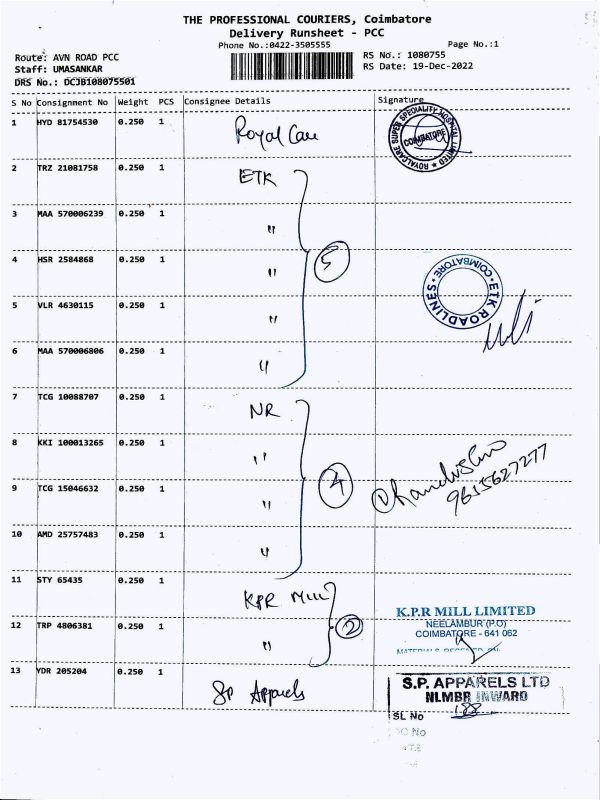 THE PROFESSIONAL COURIERS, Coimbatore
Delivery Runsheet - PCC
Phone No.:0422-3505555
Page No.:1
Route: AVN ROAD PCC
RS No.: 1080755
Staff: UMASANKAR
RS Date: 19-Dec-2022
DRS No.: DCJB108075501
S No Consignment No Weight PCS Consignee Details Signature
1 HYD 81754530 0.250 1 Royal Care
ROYALCARE SUPER SPECIALITY HOSPITAL LIMITED
COIMBATORE
2 TRZ 21081758 0.250 1 ETK
3 MAA 570006239 0.250 1 "
4 HSR 2584868 0.250 1 "
5
ETK ROADLINES
COIMBATORE
5 VLR 4630115 0.250 1 "
6 MAA 570006806 0.250 1 "
7 TCG 10088707 0.250 1 NR
8 KKI 100013265 0.250 1 "
9 TCG 15046632 0.250 1 "
4
9615627277
10 AMD 25757483 0.250 1 "
11 STY 65435 0.250 1 KPR Mill
K.P.R MILL LIMITED
NEELAMBUR (P.O)
COIMBATORE - 641 062
12 TRP 4806381 0.250 1 "
2
13 YDR 205204 0.250 1 SP Apparels
S.P. APPARELS LTD
NLMBR INWARD
SL No 188
DC No